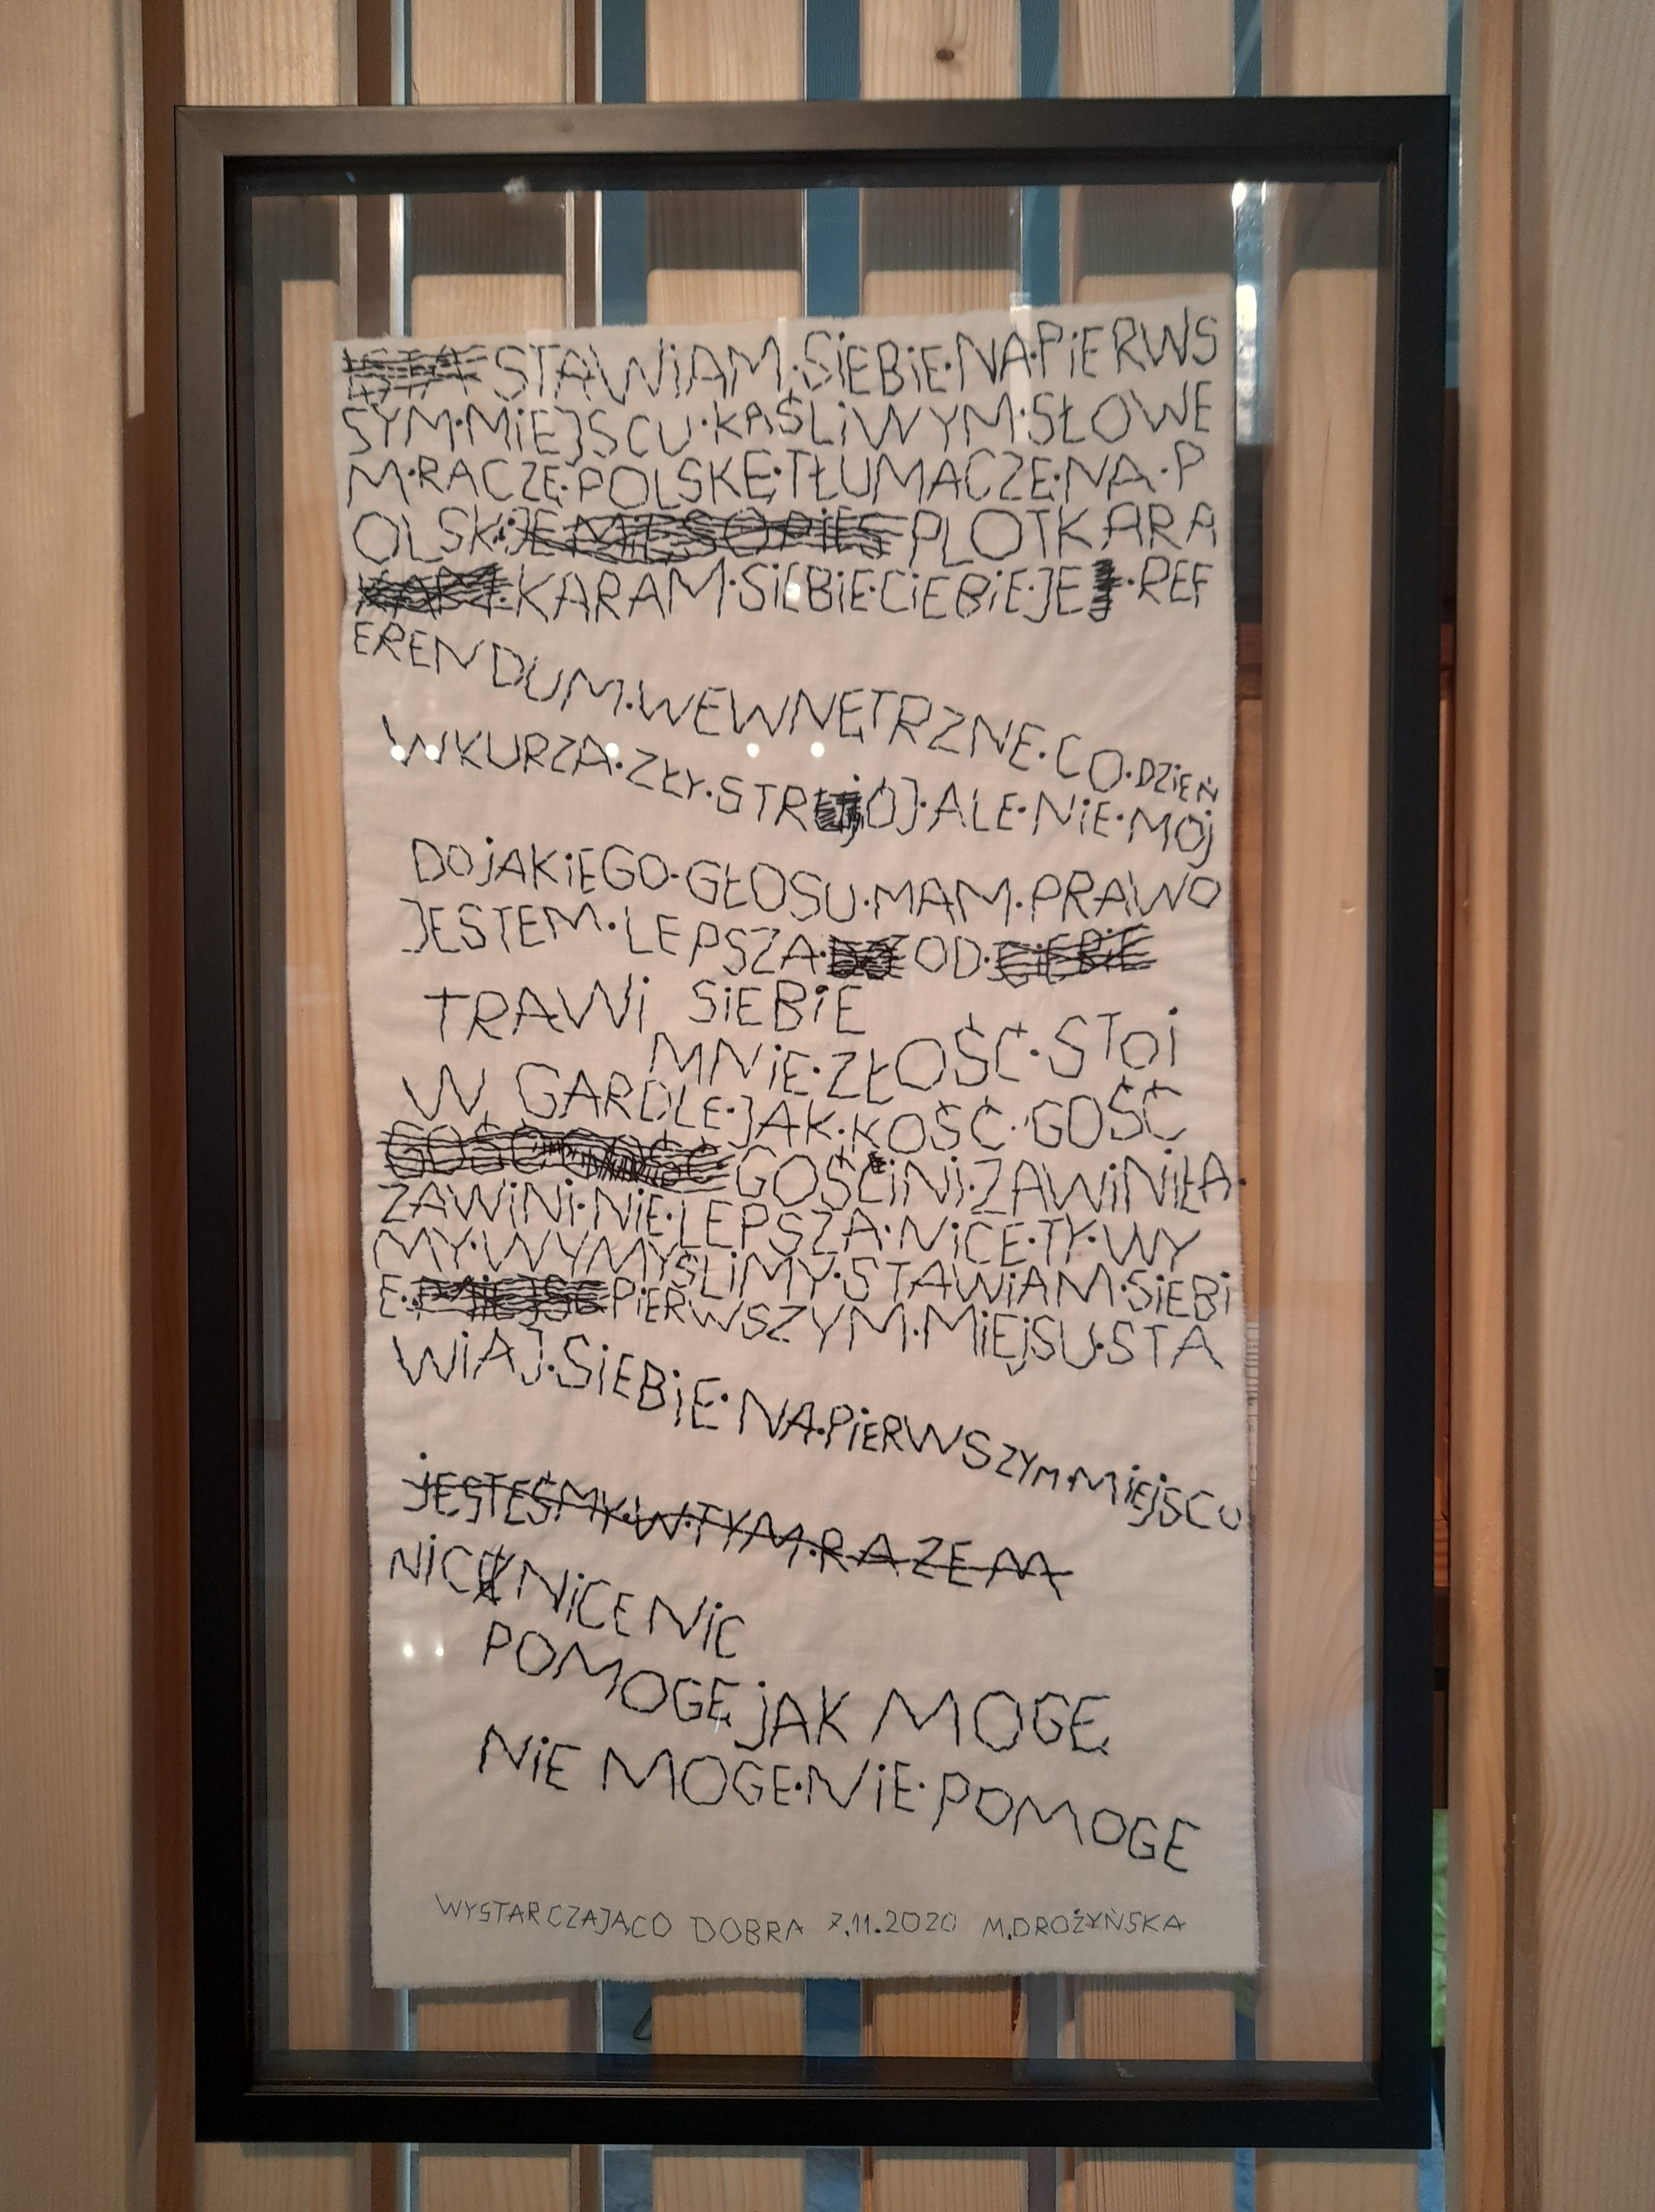 STAWiAM·SiEBiE·NA·PiERWS
SYM·MiEJSCU·KĄŚLiWYM·SŁOWE
M·RACZĘ·POLSKĘ·TŁUMACZE·NA·P
OLSK·JEMIĘSOPIES PLOTKARA
KARAM·SiEBiE·CiEBiE·JE·REF
ERENDUM·WEWNĘTRZNE·CO·DZiEŃ
WKURZA·ZŁY·STRÓJ·ALE·NiE·MÓJ
DOJAKiEGO·GŁOSU·MAM·PRAWO
JESTEM·LEPSZA·OD·CiEBiE
TRAWi SiEBiE
MNiE·ZŁOŚĆ·STOi
W GARDLE·JAK·KOŚĆ·GOŚĆ
GOŚĆ GOŚĆ GOŚCiNi·ZAWiNiŁA·
ZAWiNi·NiE·LEPSZA·NiCE·TY·WY
MY·WYMYŚLiMY·STAWiAM·SiEBi
E·MiEJSC PiERWSZYM·MiEJSU·STA
WiAJ·SiEBiE·NA·PiERWSZYM·MiEJSCU
JESTEŚMY·W·TYM·RAZEM
NiC NiCE NiC
POMOGĘ JAK MOGĘ
NiE MOGE·NiE·POMOGE
WYSTARCZAJĄCO DOBRA 7.11.2020 M.DROŻYŃSKA